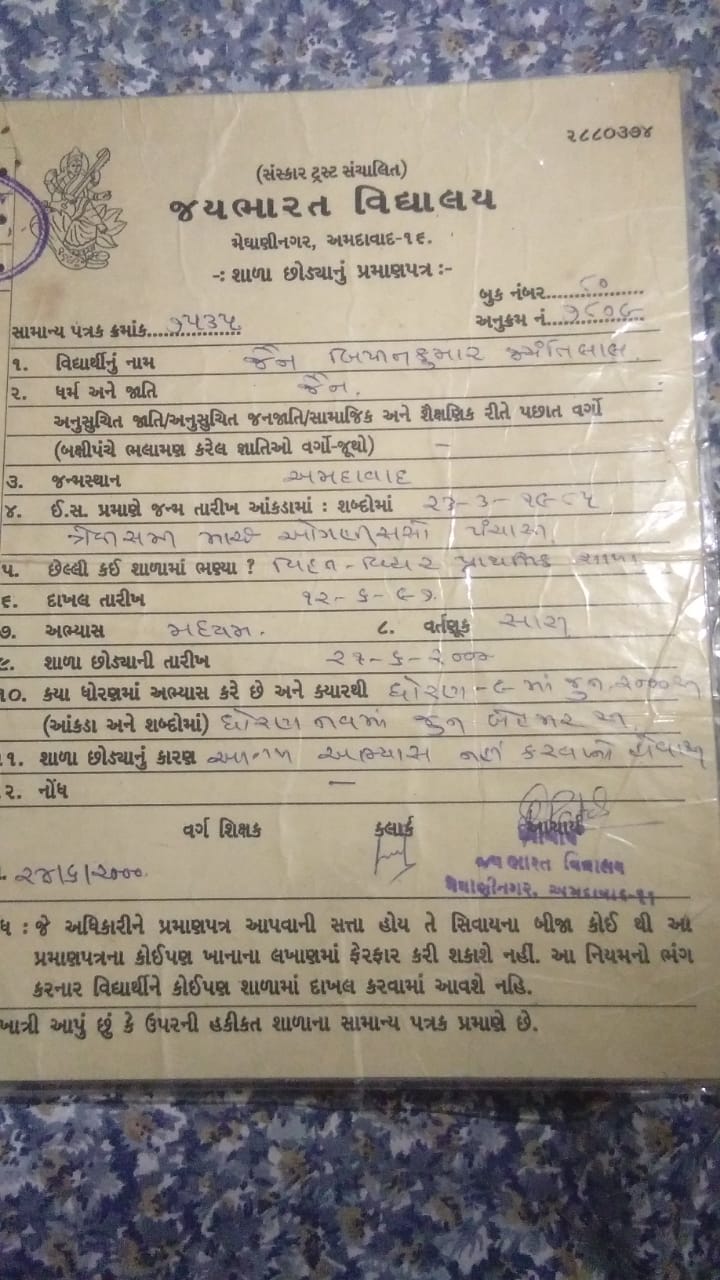 ૨૮૮૦૩૭૪
(સંસ્કાર ટ્રસ્ટ સંચાલિત)
જયભારત વિદ્યાલય
મેઘાણીનગર, અમદાવાદ-૧૬.
-: શાળા છોડ્યાનું પ્રમાણપત્ર :-
બુક નંબર
સામાન્ય પત્રક ક્રમાંક ૭૫૩૫
અનુક્રમ નં
૧. વિદ્યાર્થીનું નામ જૈન બિપીનકુમાર જ્યંતિલાલ.
૨. ધર્મ અને જાતિ જૈન.
અનુસુચિત જાતિ/અનુસુચિત જનજાતિ/સામાજિક અને શૈક્ષણિક રીતે પછાત વર્ગો
(બક્ષીપંચે ભલામણ કરેલ જ્ઞાતિઓ વર્ગો-જૂથો) –
૩. જન્મસ્થાન અમદાવાદ
૪. ઈ.સ. પ્રમાણે જન્મ તારીખ આંકડામાં : શબ્દોમાં ૨૩-૩-૧૯૮૫
ત્રેવીસમી માર્ચ ઓગણીસસો પંચાસી
૫. છેલ્લી કઈ શાળામાં ભણ્યા ? પ્રાથમિક શાળા
૬. દાખલ તારીખ ૧૨-૬-૯૭.
૭. અભ્યાસ મધ્યમ. ૮. વર્તણૂક સારી
૯. શાળા છોડ્યાની તારીખ ૨૧-૬-૨૦૦૦
૧૦. કયા ધોરણમાં અભ્યાસ કરે છે અને ક્યારથી ધોરણ-૯ માં જુન ૨૦૦૦થી
(આંકડા અને શબ્દોમાં) ધોરણ નવમાં જુન બેહજાર થી
૧. શાળા છોડ્યાનું કારણ આગળ અભ્યાસ નહીં કરવાનો હોવાથી
૨. નોંધ –
વર્ગ શિક્ષક કલાર્ક આચાર્ય
જય ભારત વિદ્યાલય
મેઘાણીનગર, અમદાવાદ-૧૬
૨૪/૬/૨૦૦૦
ધ : જે અધિકારીને પ્રમાણપત્ર આપવાની સત્તા હોય તે સિવાયના બીજા કોઈ થી આ
પ્રમાણપત્રના કોઈપણ ખાનાના લખાણમાં ફેરફાર કરી શકાશે નહીં. આ નિયમનો ભંગ
કરનાર વિદ્યાર્થીને કોઈપણ શાળામાં દાખલ કરવામાં આવશે નહિ.
ખાત્રી આપું છું કે ઉપરની હકીકત શાળાના સામાન્ય પત્રક પ્રમાણે છે.